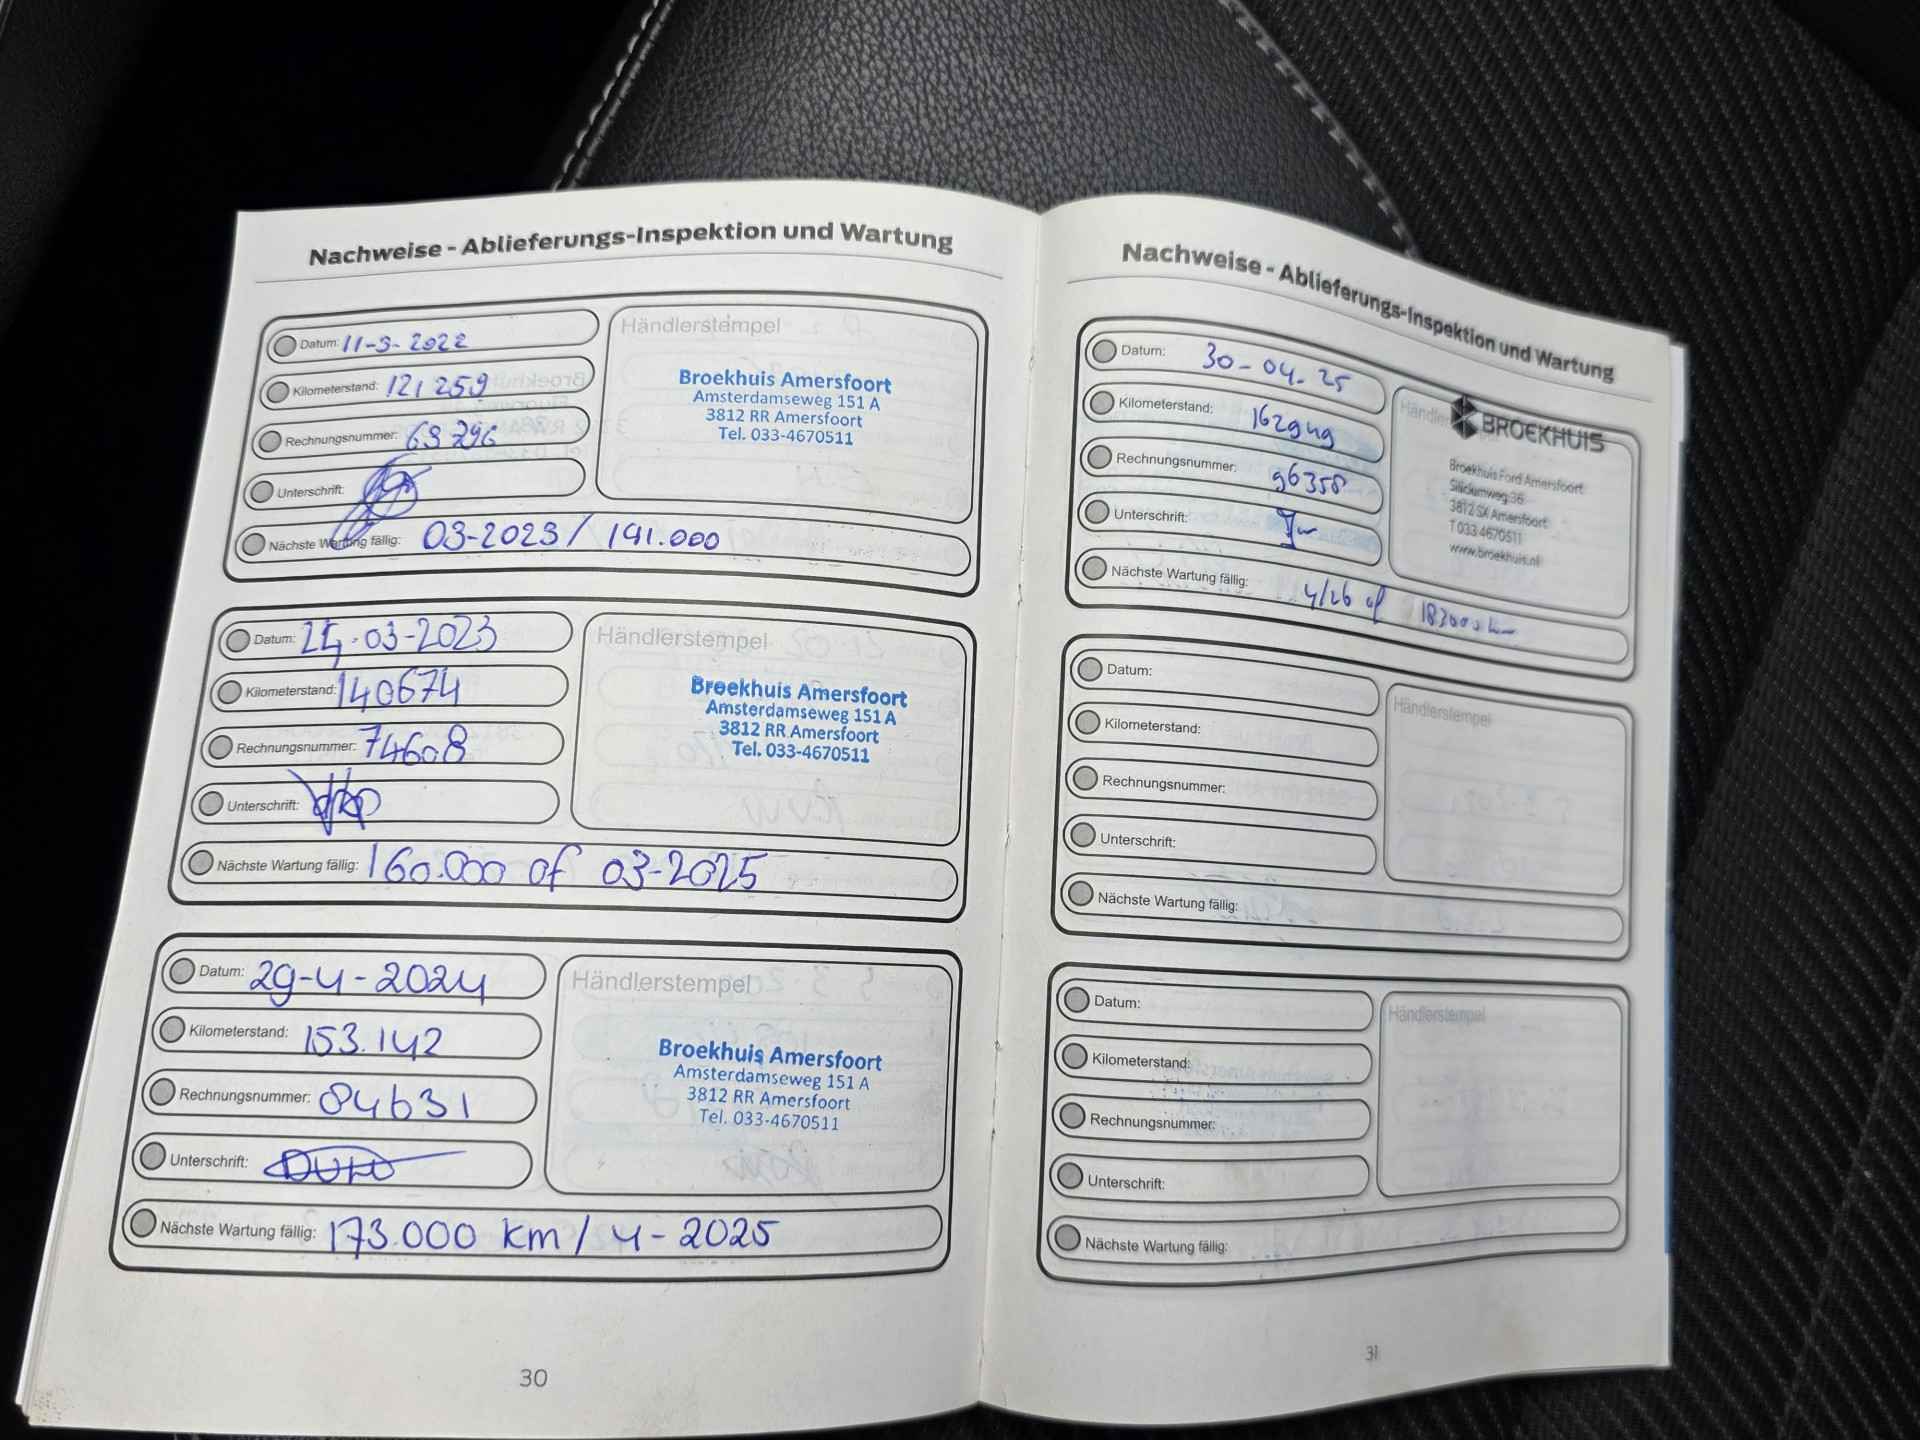 Nachweise - Ablieferungs-Inspektion und Wartung
Datum: 11-3-2022
Kilometerstand: 121 259
Rechnungsnummer: 69296
Unterschrift:
Nächste Wartung fällig: 03-2023 / 141.000
Händlerstempel
Broekhuis Amersfoort
Amsterdamseweg 151 A
3812 RR Amersfoort
Tel. 033-4670511
Datum: 24-03-2023
Kilometerstand: 140674
Rechnungsnummer: 74608
Unterschrift:
Nächste Wartung fällig: 160.000 of 03-2025
Händlerstempel
Broekhuis Amersfoort
Amsterdamseweg 151 A
3812 RR Amersfoort
Tel. 033-4670511
Datum: 29-4-2024
Kilometerstand: 153.142
Rechnungsnummer: 84631
Unterschrift:
Nächste Wartung fällig: 173.000 km / 4-2025
Händlerstempel
Broekhuis Amersfoort
Amsterdamseweg 151 A
3812 RR Amersfoort
Tel. 033-4670511
30
Nachweise - Ablieferungs-Inspektion und Wartung
Datum: 30-04-25
Kilometerstand: 162949
Rechnungsnummer: 96358
Unterschrift:
Nächste Wartung fällig: 4/26 of 183000 km
Händlerstempel
BROEKHUIS
Broekhuis Ford Amersfoort
Siliciumweg 36
3812 SX Amersfoort
T 033 4670511
www.broekhuis.nl
Datum:
Kilometerstand:
Rechnungsnummer:
Unterschrift:
Nächste Wartung fällig:
Händlerstempel
Datum:
Kilometerstand:
Rechnungsnummer:
Unterschrift:
Nächste Wartung fällig:
Händlerstempel
31